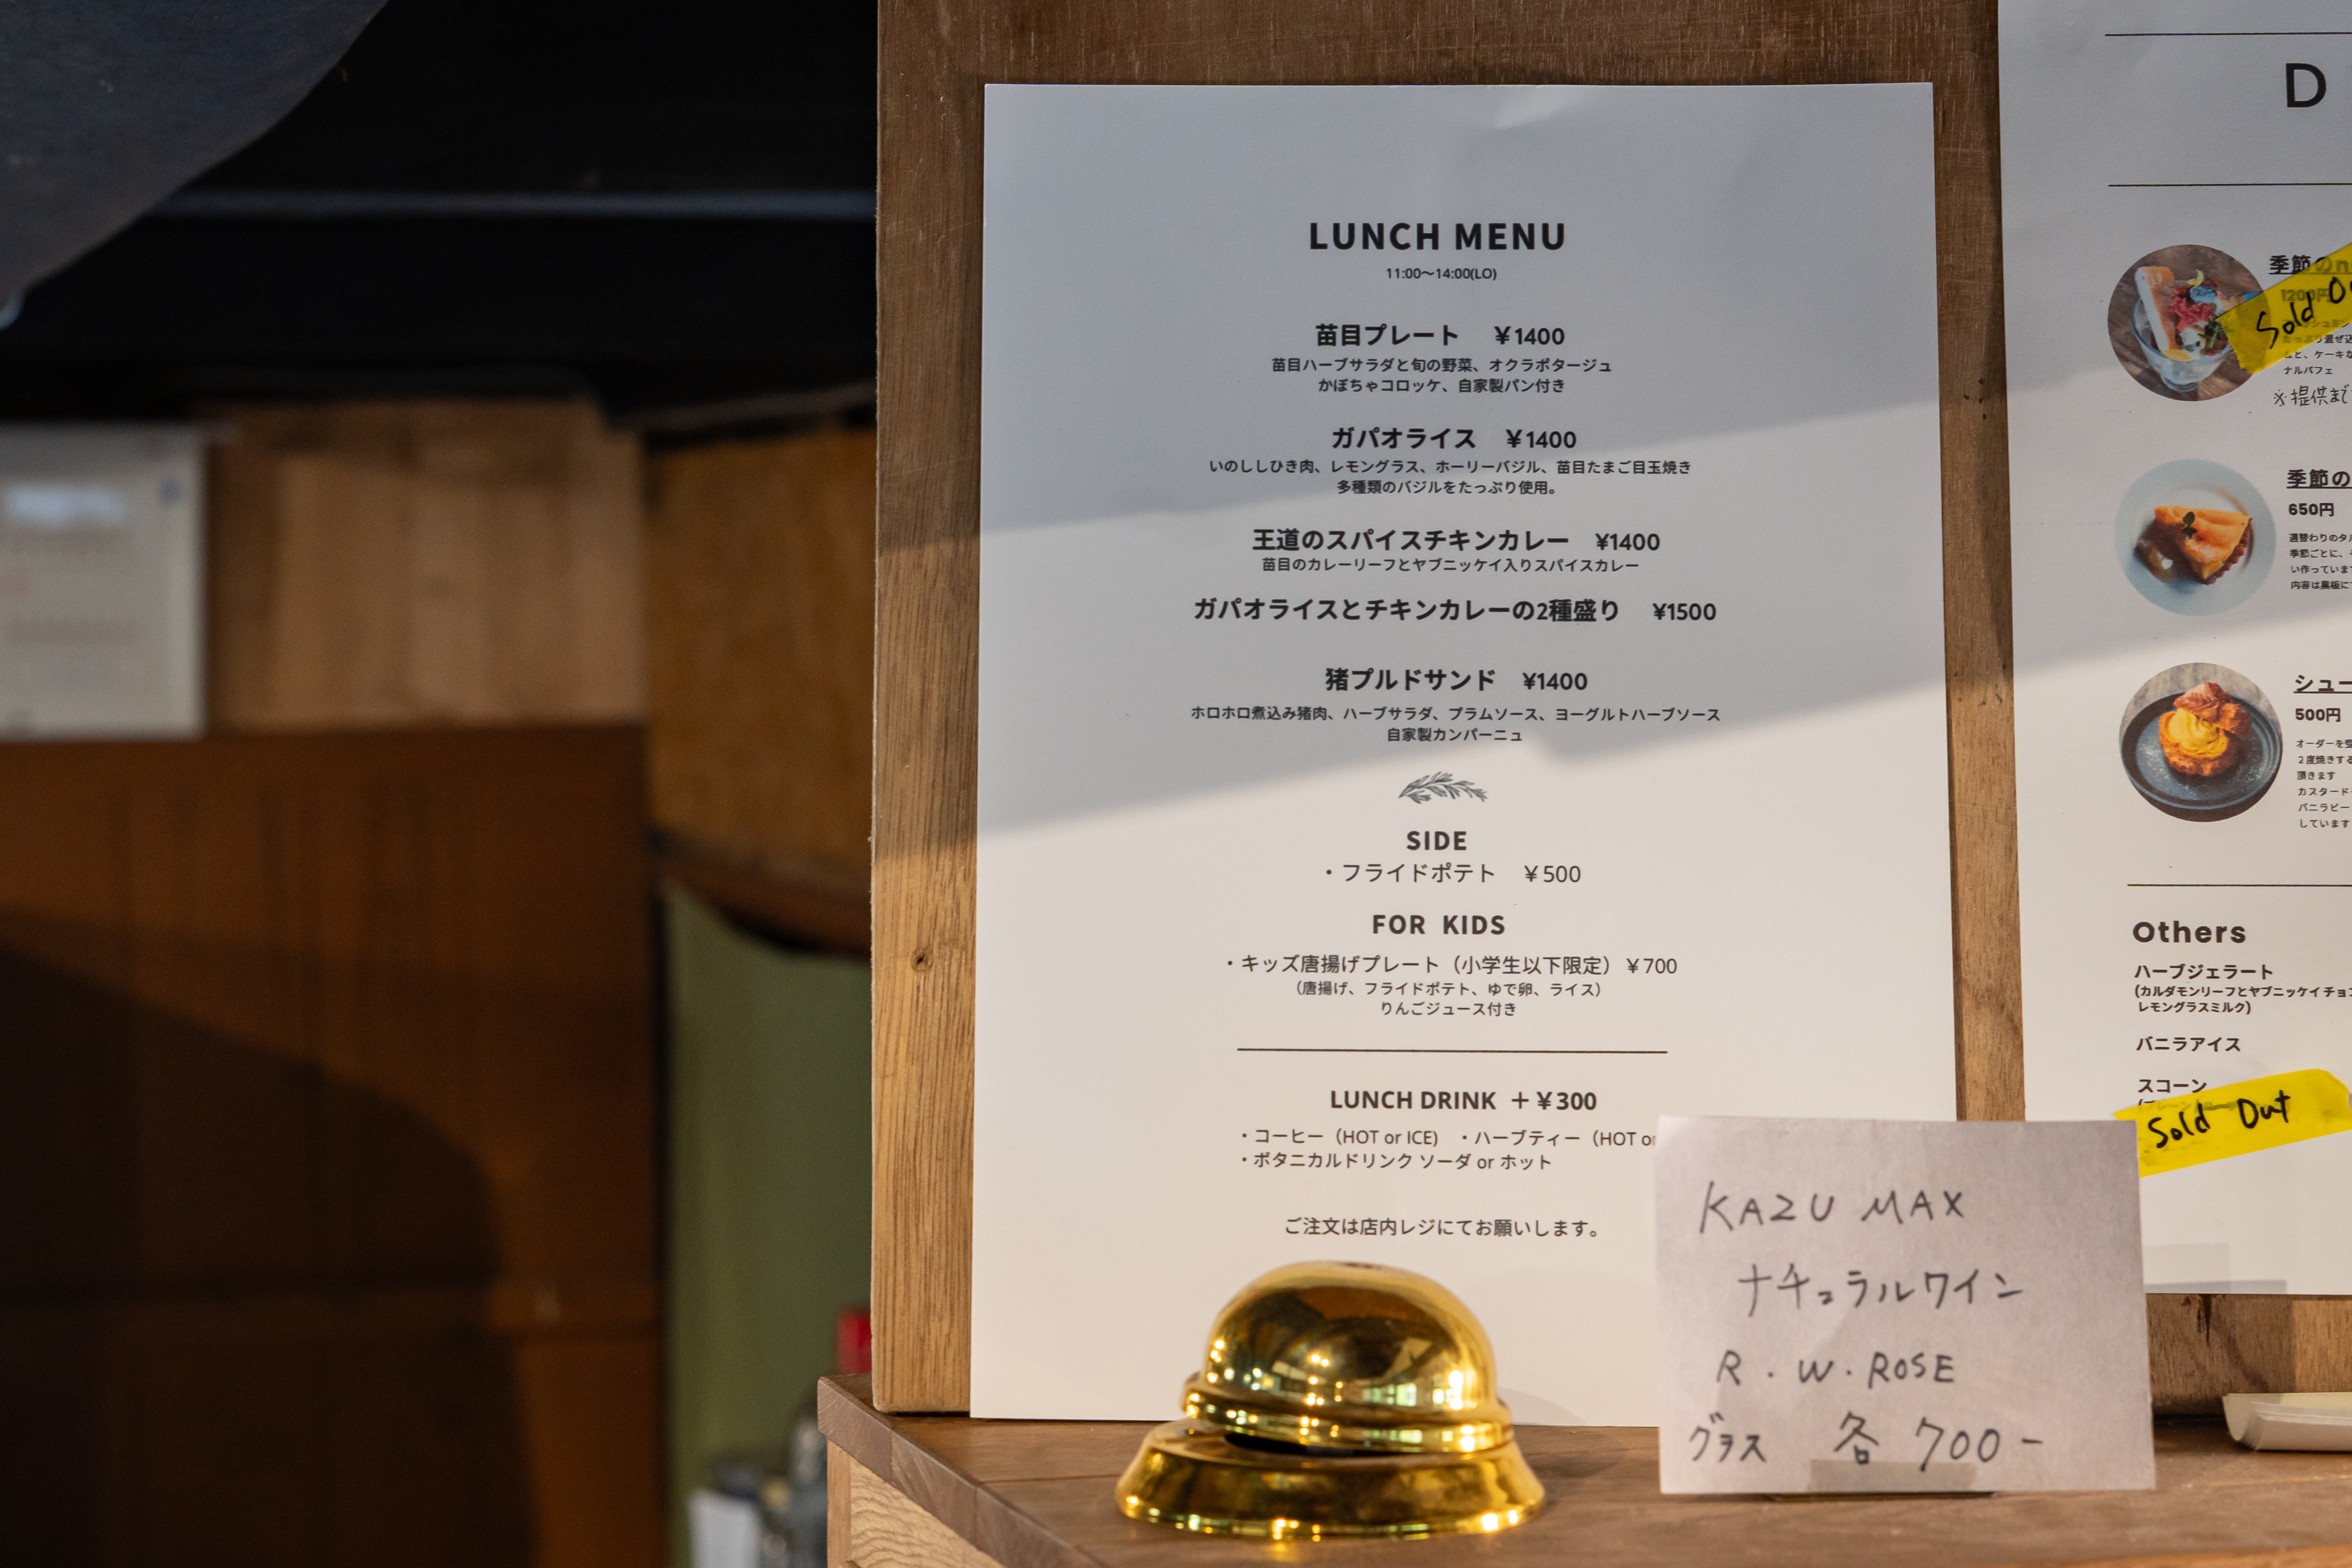 LUNCH MENU
11:00～14:00(LO)
苗目プレート ￥1400
苗目ハーブサラダと旬の野菜、オクラポタージュ
かぼちゃコロッケ、自家製パン付き
ガパオライス ￥1400
いのししひき肉、レモングラス、ホーリーバジル、苗目たまご目玉焼き
多種類のバジルをたっぷり使用。
王道のスパイスチキンカレー ¥1400
苗目のカレーリーフとヤブニッケイ入りスパイスカレー
ガパオライスとチキンカレーの2種盛り ¥1500
猪プルドサンド ¥1400
ホロホロ煮込み猪肉、ハーブサラダ、プラムソース、ヨーグルトハーブソース
自家製カンパーニュ
SIDE
・フライドポテト ￥500
FOR KIDS
・キッズ唐揚げプレート（小学生以下限定）￥700
（唐揚げ、フライドポテト、ゆで卵、ライス）
りんごジュース付き
LUNCH DRINK ＋￥300
・コーヒー（HOT or ICE） ・ハーブティー（HOT or
・ボタニカルドリンク ソーダ or ホット
ご注文は店内レジにてお願いします。
KAZU MAX
ナチュラルワイン
R . W . ROSE
グラス 各 700 -
D
季節の
1200円
Sold
ムと、ケーキな
ナルパフェ
※提供まで
季節の
650円
週替わりのタル
季節ごとに、そ
い作っています
内容は黒板に
シュー
500円
オーダーを受
２度焼きする
頂きます
カスタード
バニラビー
しています
Others
ハーブジェラート
(カルダモンリーフとヤブニッケイチョコ
レモングラスミルク)
バニラアイス
スコーン
Sold Out